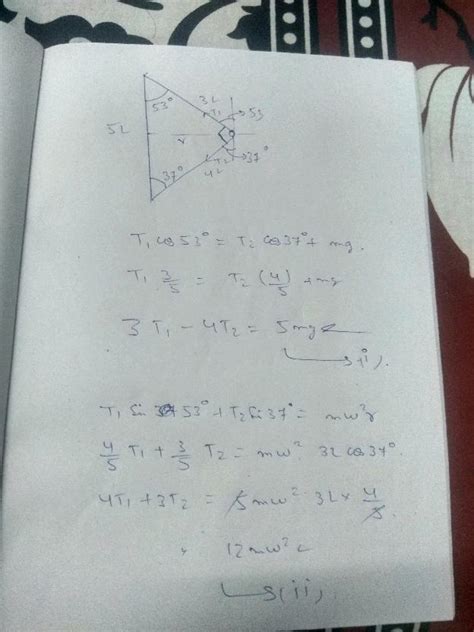 53°
3L
T₁
53
5L
r
T₂
37°
37°
4L
T₁ cos 53° = T₂ cos 37° + mg.
T₁ 3/5 = T₂ (4/5) + mg
3T₁ - 4T₂ = 5mg
(i).
T₁ Sin 53° + T₂ Sin 37° = mω²r
4/5 T₁ + 3/5 T₂ = mω² 3L cos 37°.
4T₁ + 3T₂ = 5mω² 3L × 4/5.
12mω²L
(ii)